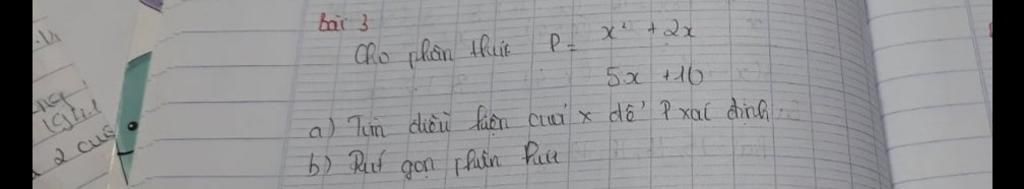 bài 3
Cho phân thức P = x² + 2x
5x + 10
a) Tìm điều kiện của x để P xác định
b) Rút gọn phân thức
2 cuộ